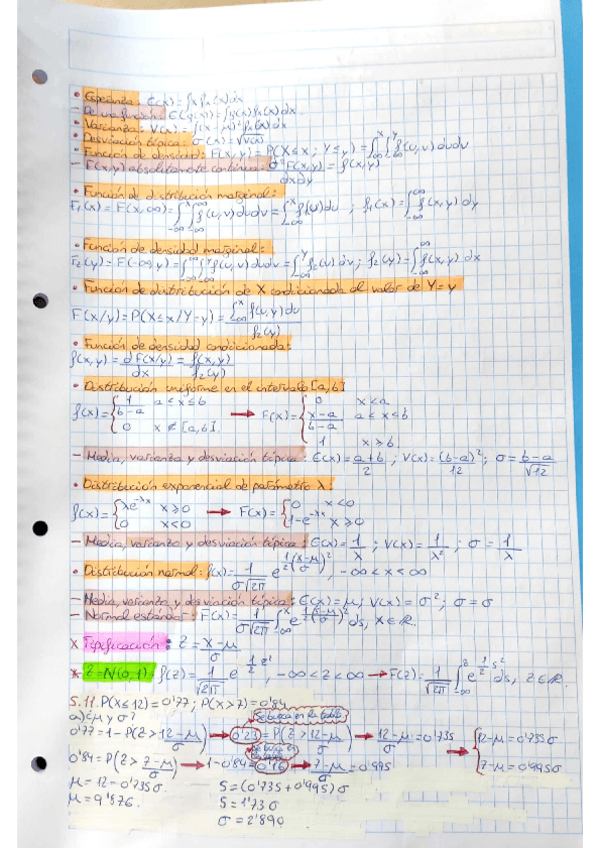 • Esperanza: E(x) = ∫x f_x(x) dx
- De una función: E(g(x)) = ∫g(x) f_x(x) dx
• Varianza: V(x) = ∫(x-μ)² f_x(x) dx
• Desviación típica: σ(x) = √V(x)
- Función de densidad: F(x,y) = P(X≤x; Y≤y) = ∫_{-∞}^{x} ∫_{-∞}^{y} f(u,v) du dv
- F(x,y) absolutamente continua: ∂²F(x,y)/dxdy = f(x,y)
• Función de distribución marginal:
F₁(x) = F(x,∞) = ∫_{-∞}^{x} ∫_{-∞}^{∞} f(u,v) du dv = ∫_{-∞}^{x} f(u) du ; f₁(x) = ∫_{-∞}^{∞} f(x,y) dy
• Función de densidad marginal:
F₂(y) = F(-∞,y) = ∫_{-∞}^{∞} ∫_{-∞}^{y} f(u,v) du dv = ∫_{-∞}^{y} f₂(v) dv ; f₂(y) = ∫_{-∞}^{∞} f(x,y) dx
• Función de distribución de X condicionada al valor de Y=y
F(x/y) = P(X≤x/Y=y) = ∫_{-∞}^{x} f(u,y) du / f₂(y)
• Función de densidad condicionada:
f(x,y) = ∂F(x/y)/dx = f(x,y)/f₂(y)
• Distribución uniforme en el intervalo [a,b]
f(x) = { 1/(b-a) a≤x≤b ; 0 x∉[a,b] → F(x) = { 0 x<a ; (x-a)/(b-a) a≤x≤b ; 1 x>b
- Media, varianza y desviación típica: E(x) = (a+b)/2 ; V(x) = (b-a)²/12 ; σ = (b-a)/√12
• Distribución exponencial de parámetro λ:
f(x) = { λe^{-λx} x≥0 ; 0 x<0 → F(x) = { 0 x<0 ; 1-e^{-λx} x≥0
- Media, varianza y desviación típica: E(x) = 1/λ ; V(x) = 1/λ² ; σ = 1/λ
• Distribución normal: f(x) = 1/(σ√2π) e^{-1/2((x-μ)/σ)²}, -∞<x<∞
- Media, varianza y desviación típica: E(x) = μ; V(x) = σ²; σ = σ
- Normal estándar: F(x) = 1/(σ√2π) ∫_{-∞}^{x} e^{-1/2((s-μ)/σ)²} ds, x∈ℝ.
* Tipificación: Z = (x-μ)/σ
* Z = N(0,1) f(z) = 1/√2π e^{-1/2 z²}, -∞<z<∞ → F(z) = 1/√2π ∫_{-∞}^{z} e^{-1/2 s²} ds, z∈ℝ.
5.11. P(X≤12) = 0'77 ; P(X>7) = 0'84
a) ¿μ y σ? Se busca en la tabla
0'77 = 1-P(Z > (12-μ)/σ) → 0'23 = P(Z > (12-μ)/σ) → (12-μ)/σ = 0'735 → { 12-μ = 0'735σ
Se busca en la tabla
0'84 = P(Z > (7-μ)/σ) → 1-0'84 = 0'16 → (7-μ)/σ = 0'995 { 7-μ = 0'995σ
μ = 12-0'735σ 5 = (0'735+0'995)σ
μ = 9'876. 5 = 1'73σ
σ = 2'890